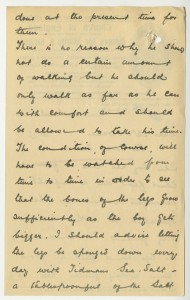 done at the present time for
them.
There is no reason why he should
not do a certain amount
of walking but he should
only walk as far as he can
with comfort and should
be allowed to take his time.
The condition, of course, will
have to be watched from
time to time in order to see
that the bones of the legs grow
sufficiently as the boy gets
bigger. I should advise letting
the legs be sponged down every
day with Tidman's Sea-Salt -
a tablespoonful of the Salt